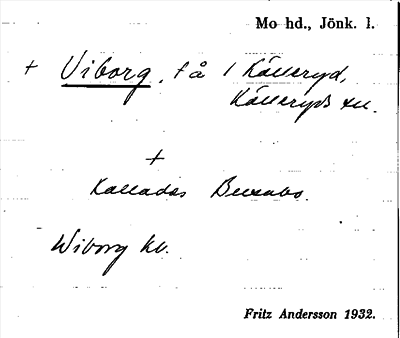 Mo hd., Jönk. l.
+ Viborg, t å 1 Källeryd,
Källeryds sn.
+
Kallades
Wiborg kv.
Fritz Andersson 1932.